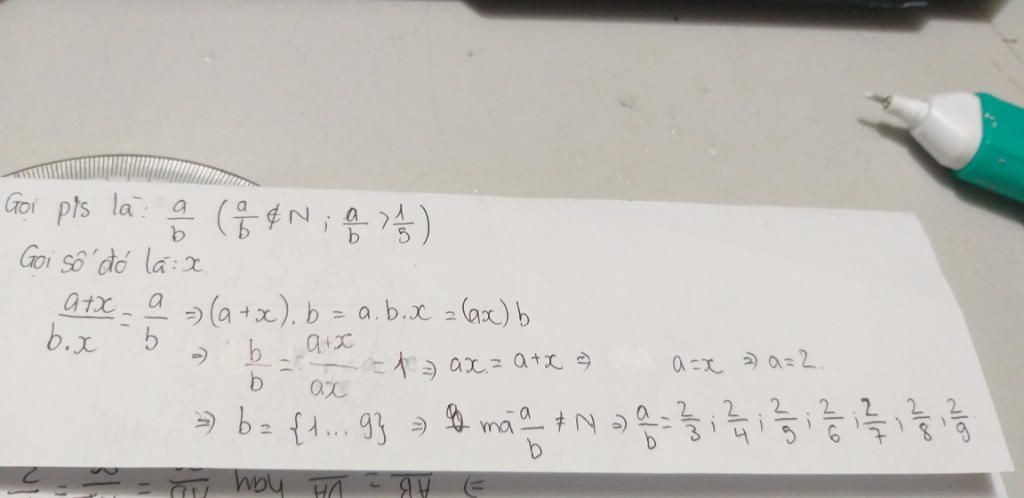 Gọi p/s là: a/b (a/b ∉ N ; a/b > 1/5)
Gọi số đó là: x.
(a+x)/(b.x) = a/b => (a+x).b = a.b.x = (ax)b
=> b/b = (a+x)/(ax) = 1 => ax = a+x => a=x => a=2.
=> b = {1...9} => mà a/b ≠ N => a/b = 2/3 ; 2/4 ; 2/5 ; 2/6 ; 2/7 ; 2/8 ; 2/9.